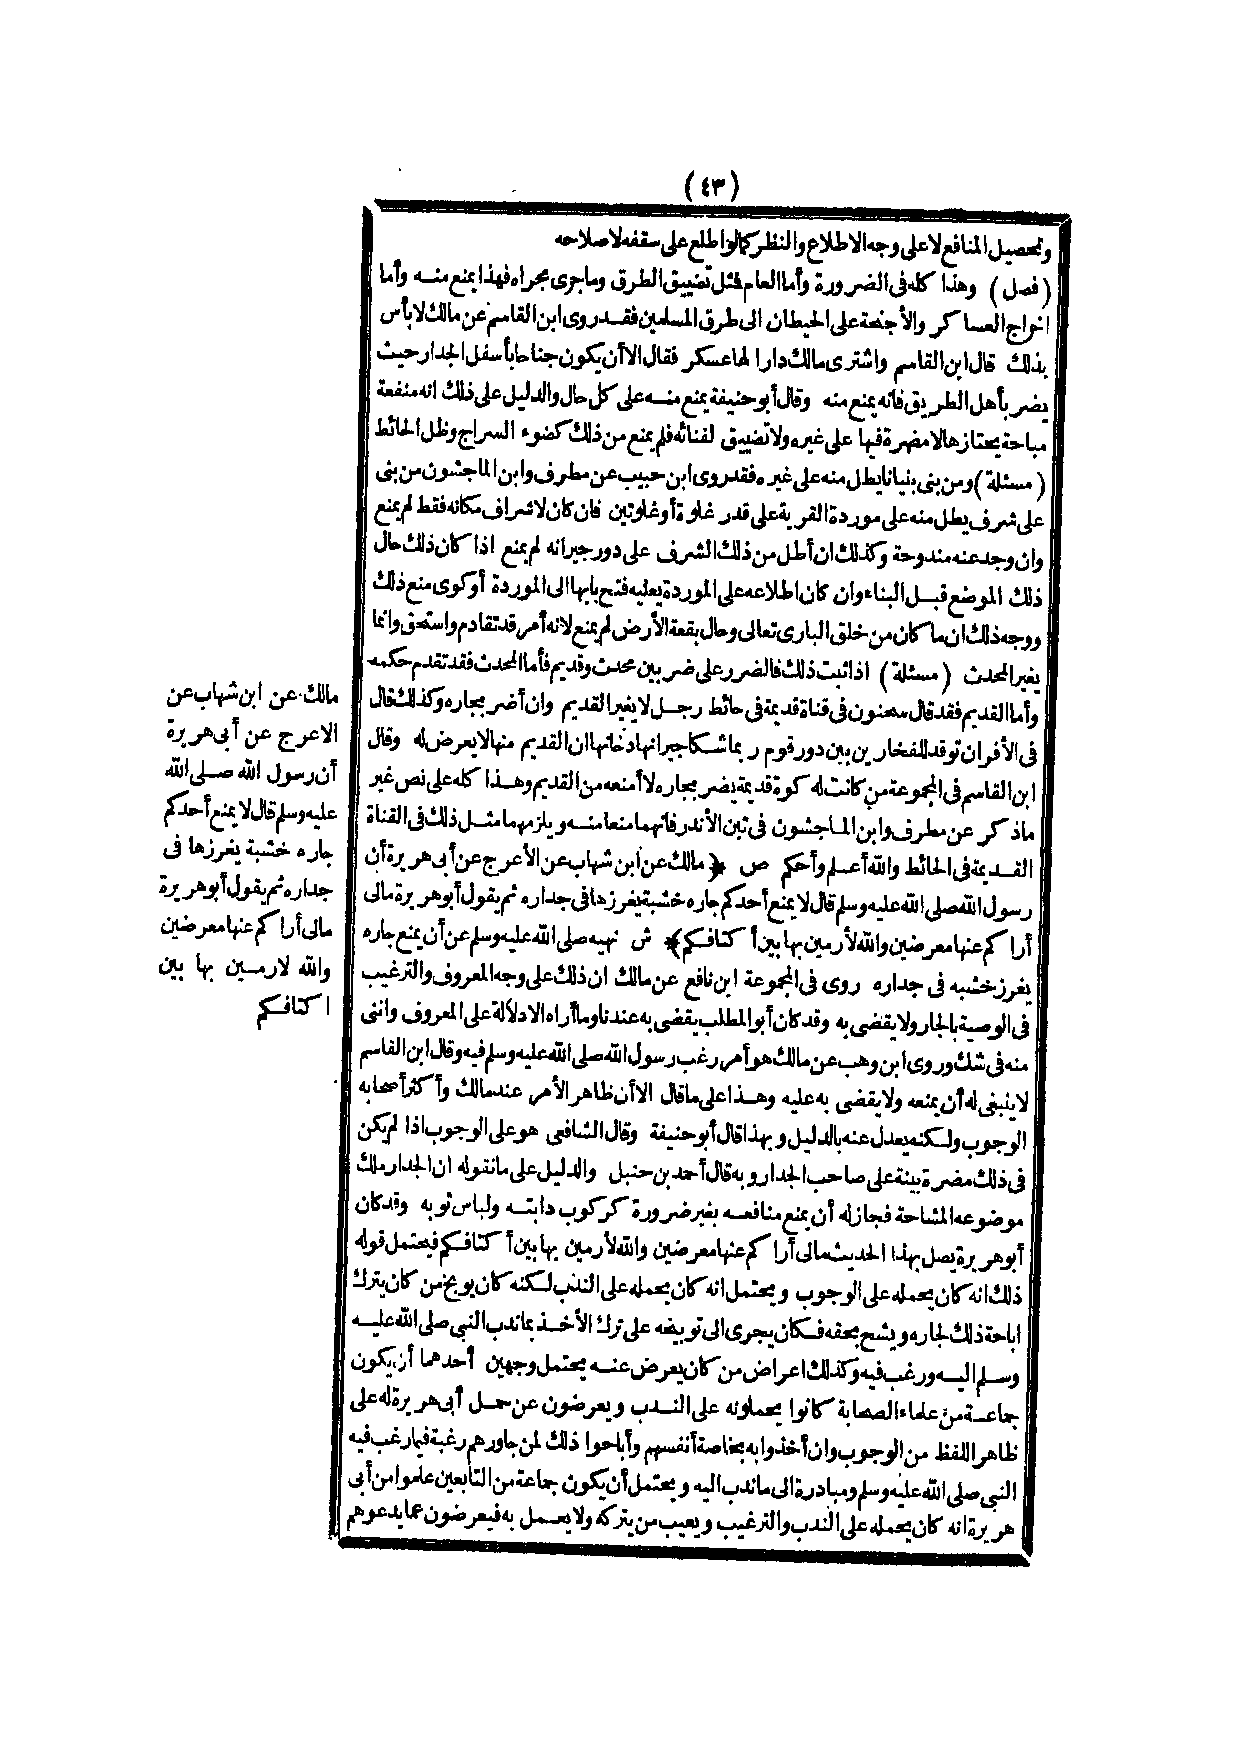 (٤٣)
وتحصيل المنافع لا على وجه الاطلاع والنظر كما لو اطلع على سقفه لاصلاحه
(فصل) وهذا كله فى الضرورة وأما العام فمثل تضييق الطرق وما جرى مجراه فهذا يمنع منه وأما
اخراج العساكر والأجنحة على الحيطان الى طرق المسلمين فقد روى ابن القاسم عن مالك لا بأس
بذلك قال ابن القاسم واشترى مالك دارا لها عسكر فقال الا أن يكون جناحا بأسفل الجدار حيث
يضر بأهل الطريق فانه يمنع منه وقال أبو حنيفة يمنع منه على كل حال والدليل على ذلك انه منفعة
مباحة يجتازها لا مضرة فيها على غيره ولا تضييق لفنائه فلم يمنع من ذلك كضوء السراج وظل الحائط
(مسئلة) ومن بنى بنيانا يطل منه على غيره فقد روى ابن حبيب عن مطرف وابن الماجشون من بنى
على شرف يطل منه على موردة القرية على قدر غلوة أو غلوتين فان كان لاشراف مكانه فقط لم يمنع
وان وجد عنه مندوحة وكذلك ان أطل من ذلك الشرف على دور جيرانه لم يمنع اذا كان ذلك حال
ذلك الموضع قبل البناء وان كان اطلاعه على الموردة بعليه فتح بابها الى الموردة أو كوى منع ذلك
ووجه ذلك ان ما كان من خلق البارى تعالى وحال بقعة الأرض لم يمنع لانه أمر قد تقادم واستحق وانما
يغير المحدث (مسئلة) اذا ثبت ذلك فالضرر على ضربين محدث وقديم فأما المحدث فقد تقدم حكمه
وأما القديم فقد قال سحنون فى قناة قديمة فى حائط رجل لا يغير القديم وان أضر بجاره وكذلك قال
فى الأفران توقد للفخارين بين دور قوم ربما شكا جيرانها دخانها ان القديم منها لا يعرض له وقال
ابن القاسم فى المجموعة من كانت له كوة قديمة يضر بجاره لا أمنعه من القديم وهذا كله على نص غير
ماذكر عن مطرف وابن الماجشون فى تبن الأندر فانهما منعا منه ويلزمهما مثل ذلك فى القناة
القديمة فى الحائط والله أعلم وأحكم ص ﴿ مالك عن ابن شهاب عن الأعرج عن أبى هريرة أن
رسول الله صلى الله عليه وسلم قال لا يمنع أحدكم جاره خشبة يغرزها فى جداره ثم يقول أبو هريرة مالى
أراكم عنها معرضين والله لأرمين بها بين أكتافكم ﴾ ش نهيه صلى الله عليه وسلم عن أن يمنع جاره
يغرز خشبه فى جداره روى فى المجموعة ابن نافع عن مالك ان ذلك على وجه المعروف والترغيب
فى الوصية بالجار ولا يقضى به وقد كان أبو المطلب يقضى به عندنا وما أراه الا دلالة على المعروف وانى
منه فى شك وروى ابن وهب عن مالك هو أمر رغب رسول الله صلى الله عليه وسلم فيه وقال ابن القاسم
لا ينبغى له أن يمنعه ولا يقضى به عليه وهذا على ماقال الا أن ظاهر الأمر عند مالك وأكثر أصحابه
الوجوب ولكنه يعدل عنه بالدليل وبهذا قال أبو حنيفة وقال الشافعى هو على الوجوب اذا لم يكن
فى ذلك مضرة بينة على صاحب الجدار وبه قال أحمد بن حنبل والدليل على ما نقوله ان الجدار ملك
موضوعه المشاحة فجاز له أن يمنع منافعه بغير ضرورة كركوب دابته ولباس ثوبه وقد كان
أبو هريرة يصل بهذا الحديث مالى أراكم عنها معرضين والله لأرمين بها بين أكتافكم فيحتمل قوله
ذلك انه كان يحمله على الوجوب ويحتمل انه كان يحمله على الندب لكنه كان يوبخ من كان يترك
اباحة ذلك لجاره ويشح بحقه فكان يجرى الى توبيخه على ترك الأخذ بما ندب النبى صلى الله عليه
وسلم اليه ورغب فيه وكذلك اعراض من كان يعرض عنه يحتمل وجهين أحدهما أن يكون
جماعة من علماء الصحابة كانوا يحملونه على الندب ويعرضون عن حمل أبى هريرة له على
ظاهر اللفظ من الوجوب وان أخذوا به بخاصة أنفسهم وأباحوا ذلك لمن جاورهم رغبة فيما رغب فيه
النبى صلى الله عليه وسلم ومبادرة الى ما ندب اليه ويحتمل أن يكون جماعة من التابعين علموا من أبى
هريرة انه كان يحمله على الندب والترغيب ويعيب من يتركه ولا يعمل به فيعرضون عما يدعوهم
مالك عن ابن شهاب عن
الاعرج عن أبى هريرة
أن رسول الله صلى الله
عليه وسلم قال لا يمنع أحدكم
جاره خشبة يغرزها فى
جداره ثم يقول أبو هريرة
مالى أراكم عنها معرضين
والله لارمين بها بين
اكتافكم